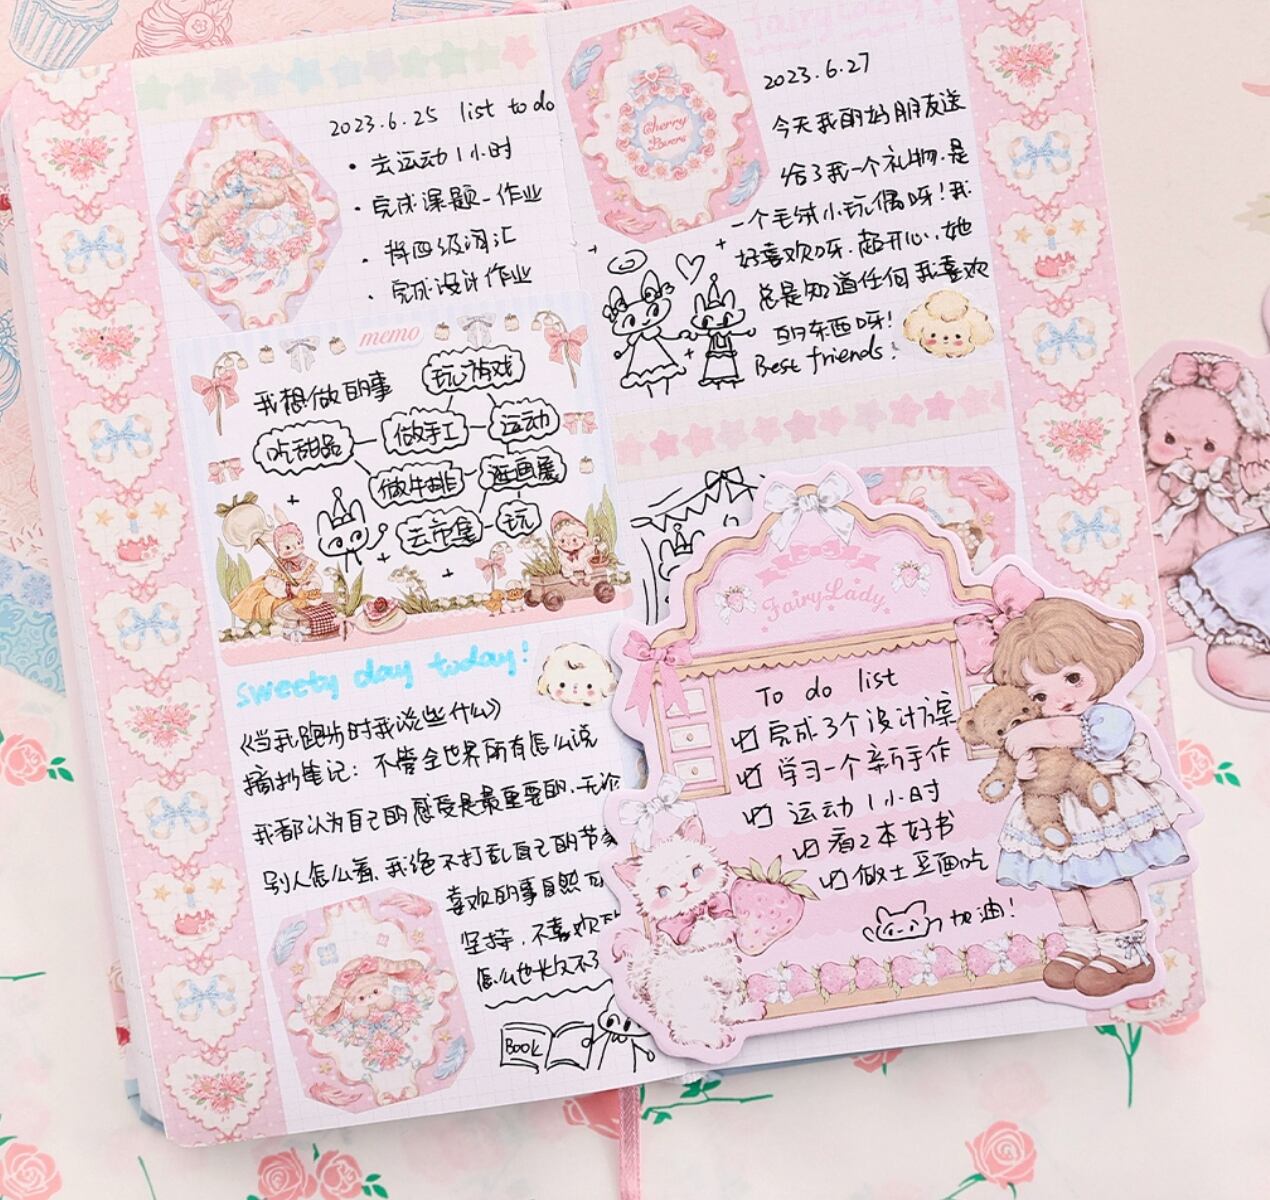 2023.6.25 list to do
• 去运动1小时
• 完成课题-作业
• 背四级词汇
• 完成设计作业
memo
我想做的事
玩游戏
吃甜品
做手工
运动
做牛排
逛画展
去市集
玩
sweety day today!
《当我跑步时我说些什么》
摘抄笔记：不管全世界所有怎么说
我都认为自己的感受是最重要的.无论
别人怎么看、我绝不打乱自己的节奏
喜欢的事自然可
坚持，不喜欢
怎么也长久不了
BOOK
Fairy Lady
Cherry
2023.6.27
今天我的好朋友送
给了我一个礼物.是
一个毛绒小玩偶呀!我
好喜欢呀.超开心.她
总是知道任何我喜欢
的东西呀!
Best friends!
Fairy Lady
To do list
完成3个设计方案
学习一个新手作
运动1小时
看2本好书
做土豆面吃
加油!